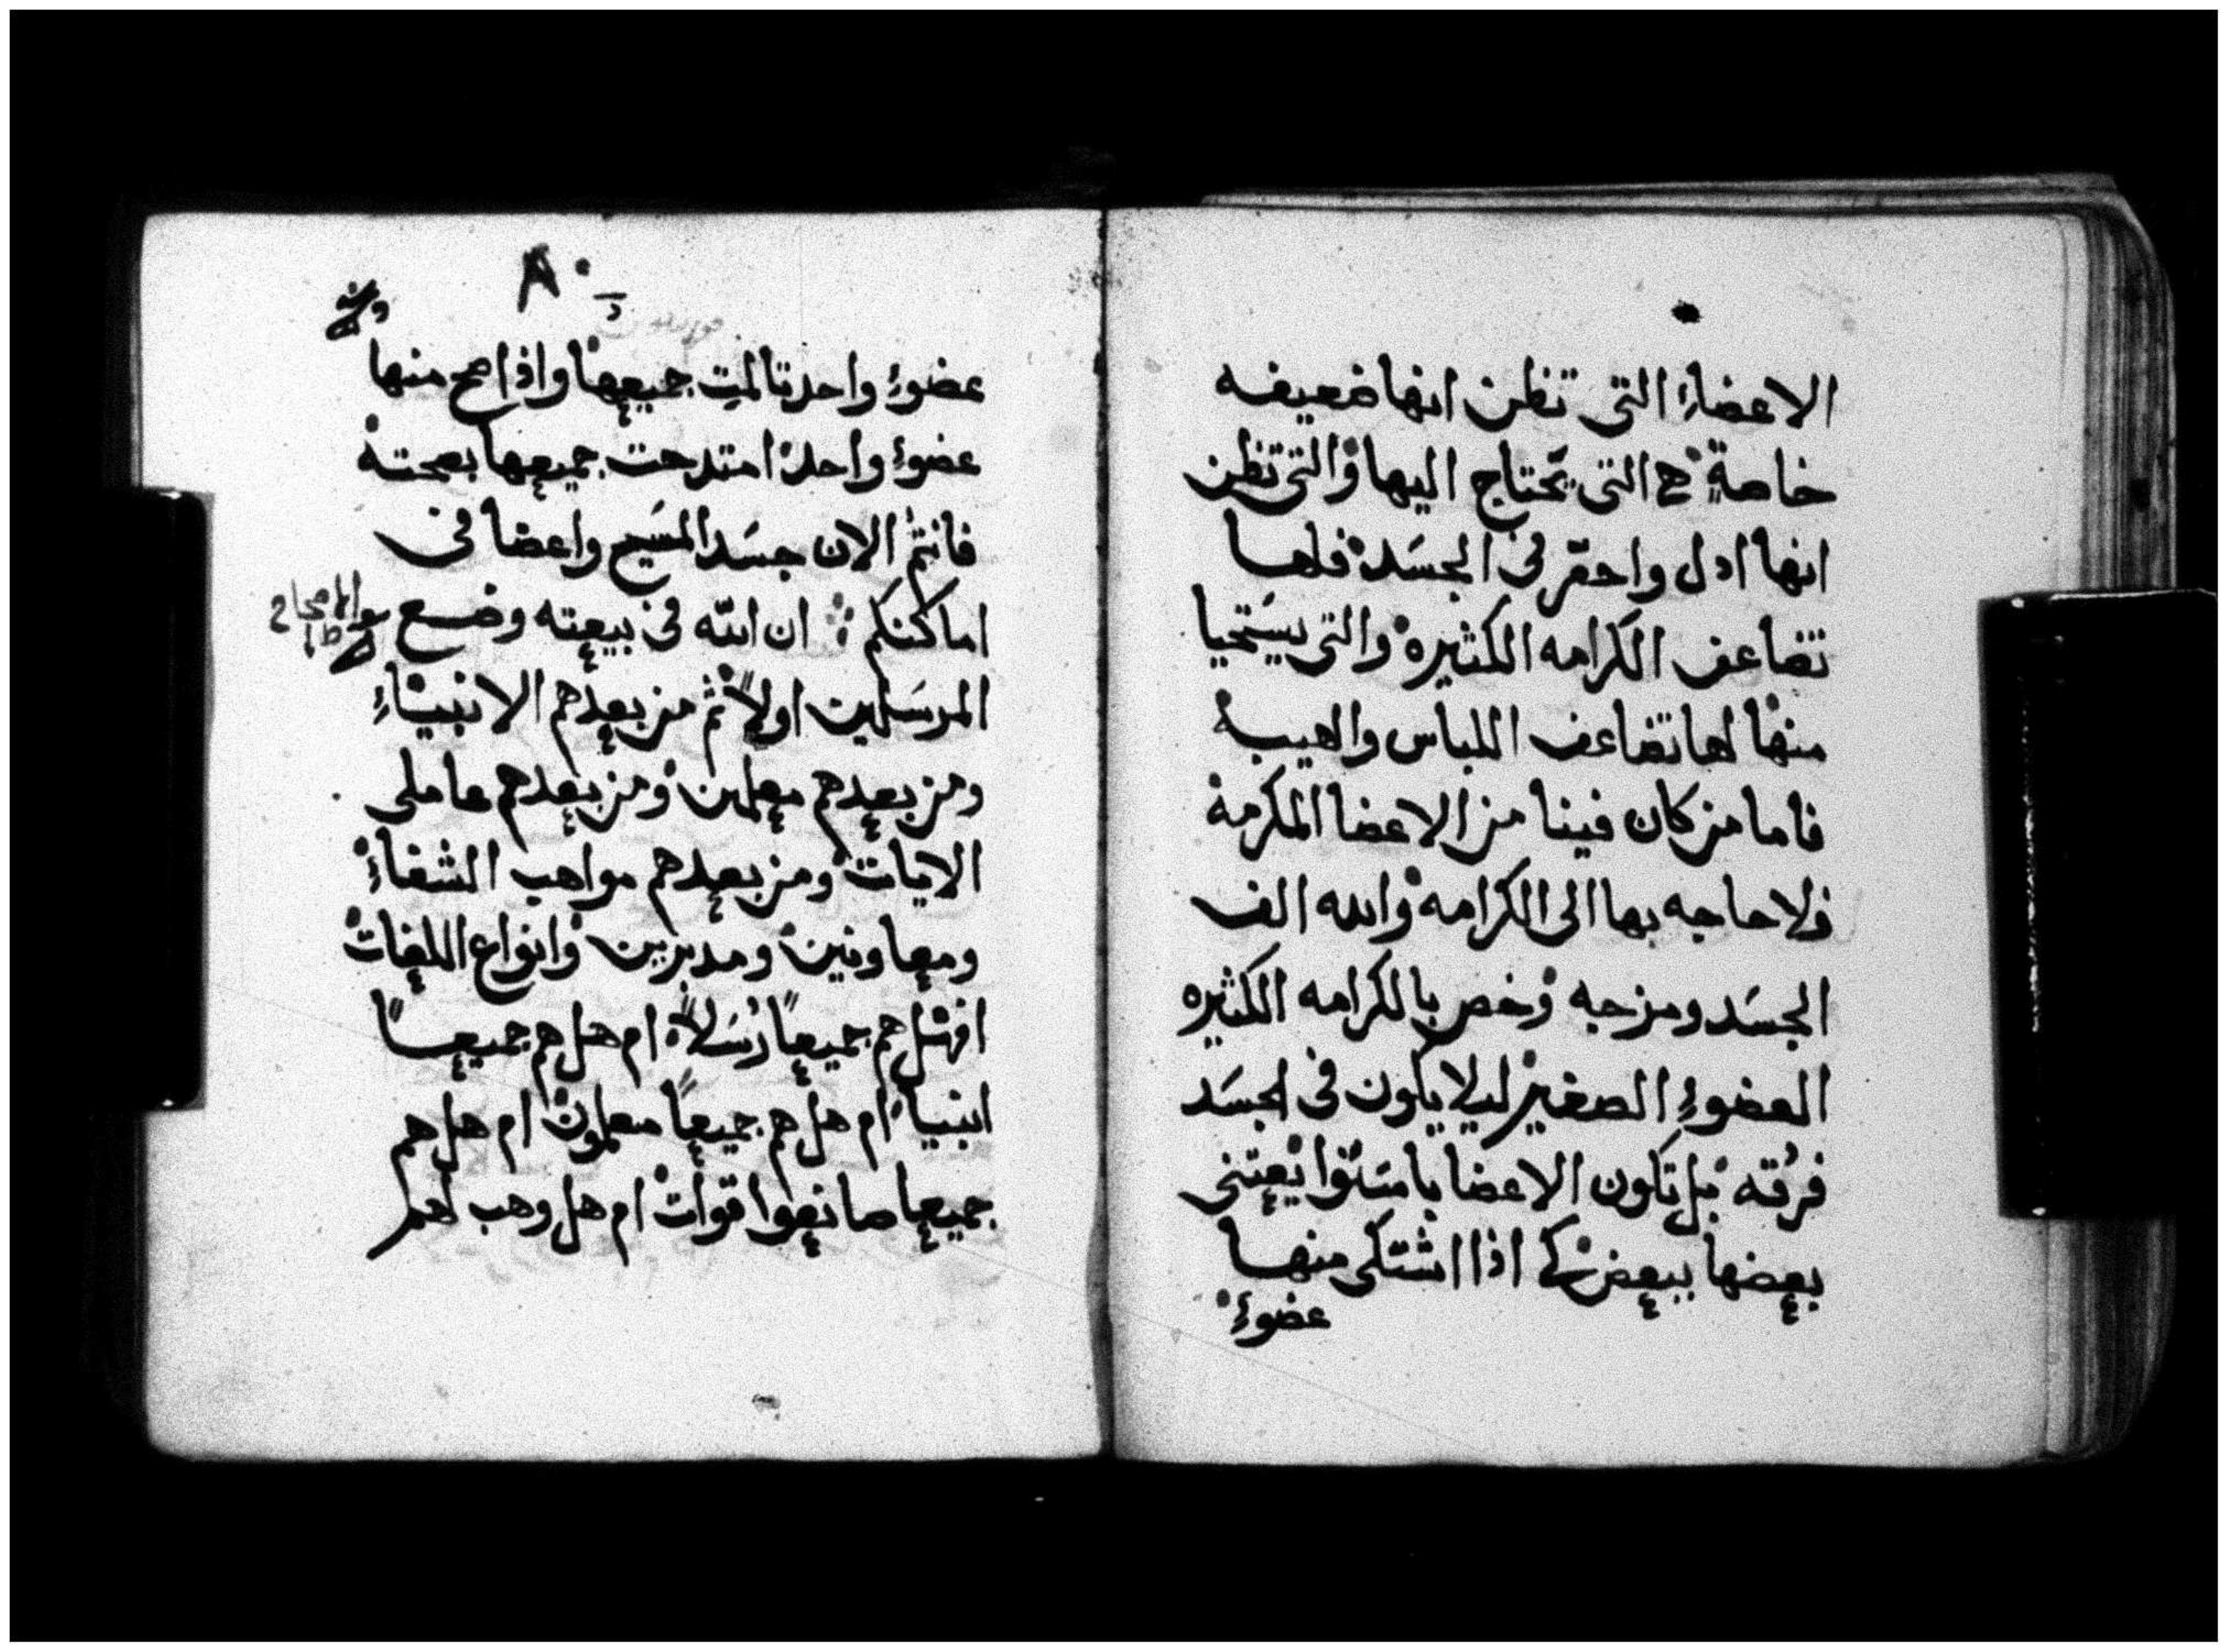 الاعضاءِ التى تظن انها ضعيفه
خاصةٍ هى التى يحتاج اليها والتى تظن
انها ادل واحقر فى الجسَد فلها
تضاعف الكرامه الكثيره والتى يستحيا
منها لها تضاعف اللباس والهيبه
فاما من كان فينا من الاعضا المكرمة
فلا حاجه بها الى الكرامه والله الف
الجسَد ومزجه وخص بالكرامه الكثيره
العضوءِ الصغير ليلا يكون فى الجسَد
فرُقه بل تكون الاعضا باسَرها يعتنى
بعضها ببعض كى اذا اشتكى منها
عضوءٍ
عضوءِ واحد تالمت جميعها واذا صح منها
عضوءِ واحد امتدحت جميعها بصحته
فانتمُ الان جسَد المسَيح واعضا فى
اماكنكم ان الله فى بيعته وضع
المرسَلين اولاً ثم من بعدهم الانبياءِ
ومن بعدهم معلمين ومن بعدهم عاملى
الايات ومن بعدهم مواهب الشفاءِ
ومعاونين ومدبرين وانواع اللغات
افهل هم جميعاً رُسَلاً ام هل هم جميعاً
انبياً ام هل هم جميعاً معلمون ام هل هم
جميعا صانعوا قوات ام هل وهب لهم